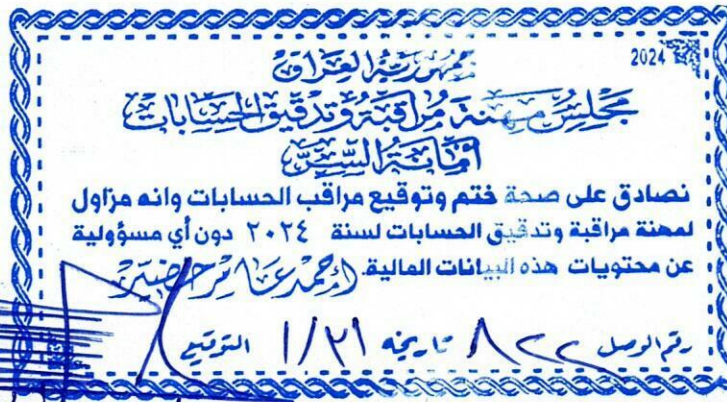 2024
جمهورية العراق
مجلس مهنة مراقبة وتدقيق الحسابات
أمانة السر
نصادق على صحة ختم وتوقيع مراقب الحسابات وانه مزاول
لمهنة مراقبة وتدقيق الحسابات لسنة ٢٠٢٤ دون أي مسؤولية
عن محتويات هذه البيانات المالية. أحمد عامر خضير
رقم الوصل ٨٢٢ تاريخه ١/٣١ التوقيع